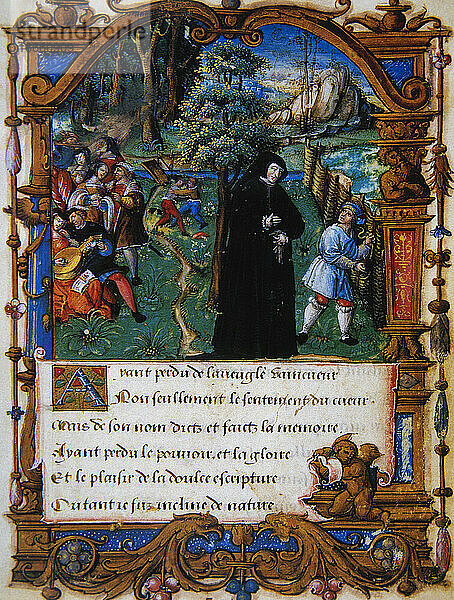 strandperle
Ayant perdu de laveugle vaincueur
Non seullement le sentement du cueur
Mais de son nom dictz et faictz la memoire
Ayant perdu le pouoir et la gloire
Et le plaisir de la doulce escripture
Ou tant ie fuz incline de nature